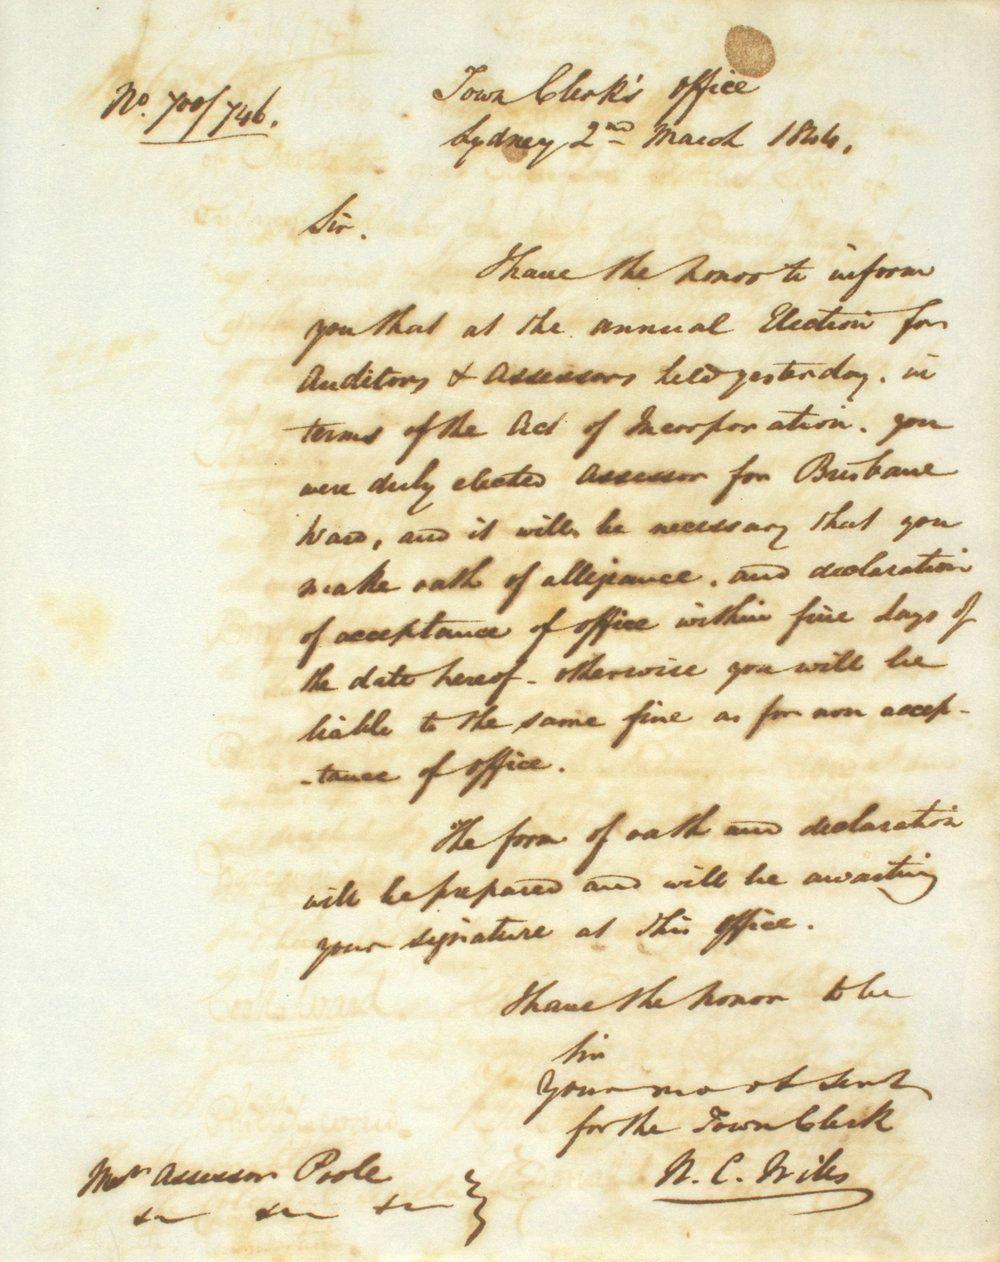 No. 700/746.
Town Clerk's Office
Sydney 2nd March 1844.
Sir.
I have the honor to inform
you that at the annual Election for
Auditors & Assessors held yesterday. in
terms of the Act of Incorporation. you
were duly elected Assessor for Brisbane
Ward, and it will be necessary that you
make oath of allegiance. and declaration
of acceptance of office within five days of
the date hereof - otherwise you will be
liable to the same fine as for non accep-
-tance of office.
The form of oath and declaration
will be prepared and will be awaiting
your signature at this office.
I have the honor to be
Sir
Your mo obt Servt
for the Town Clerk
Mr Assessor Poole
&c &c &c
Cook Ward.
Phillip Ward.